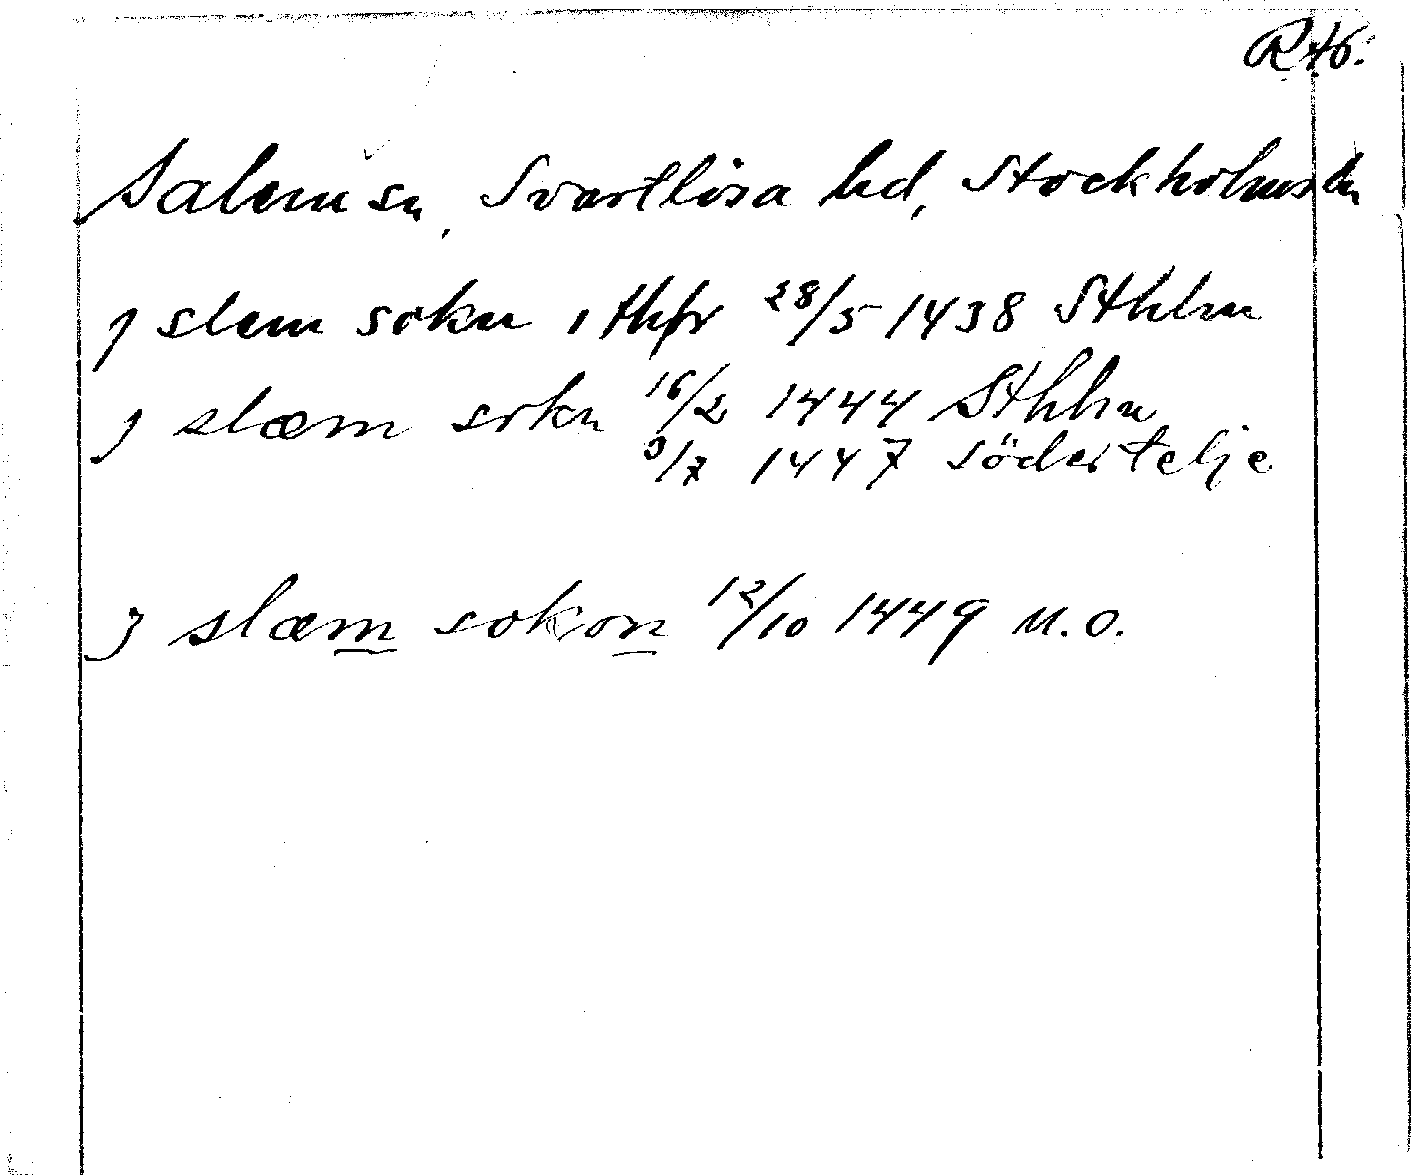 RAÖ.
Salem sn, Svartlösa hd, Stockholms ln
J slem sokn i thſr 28/5 1438 Sthlm
J slæm sokn 16/2 1444 Sthlm
3/7 1447 Södertelje
J slæm sokon 12/10 1449 u.o.